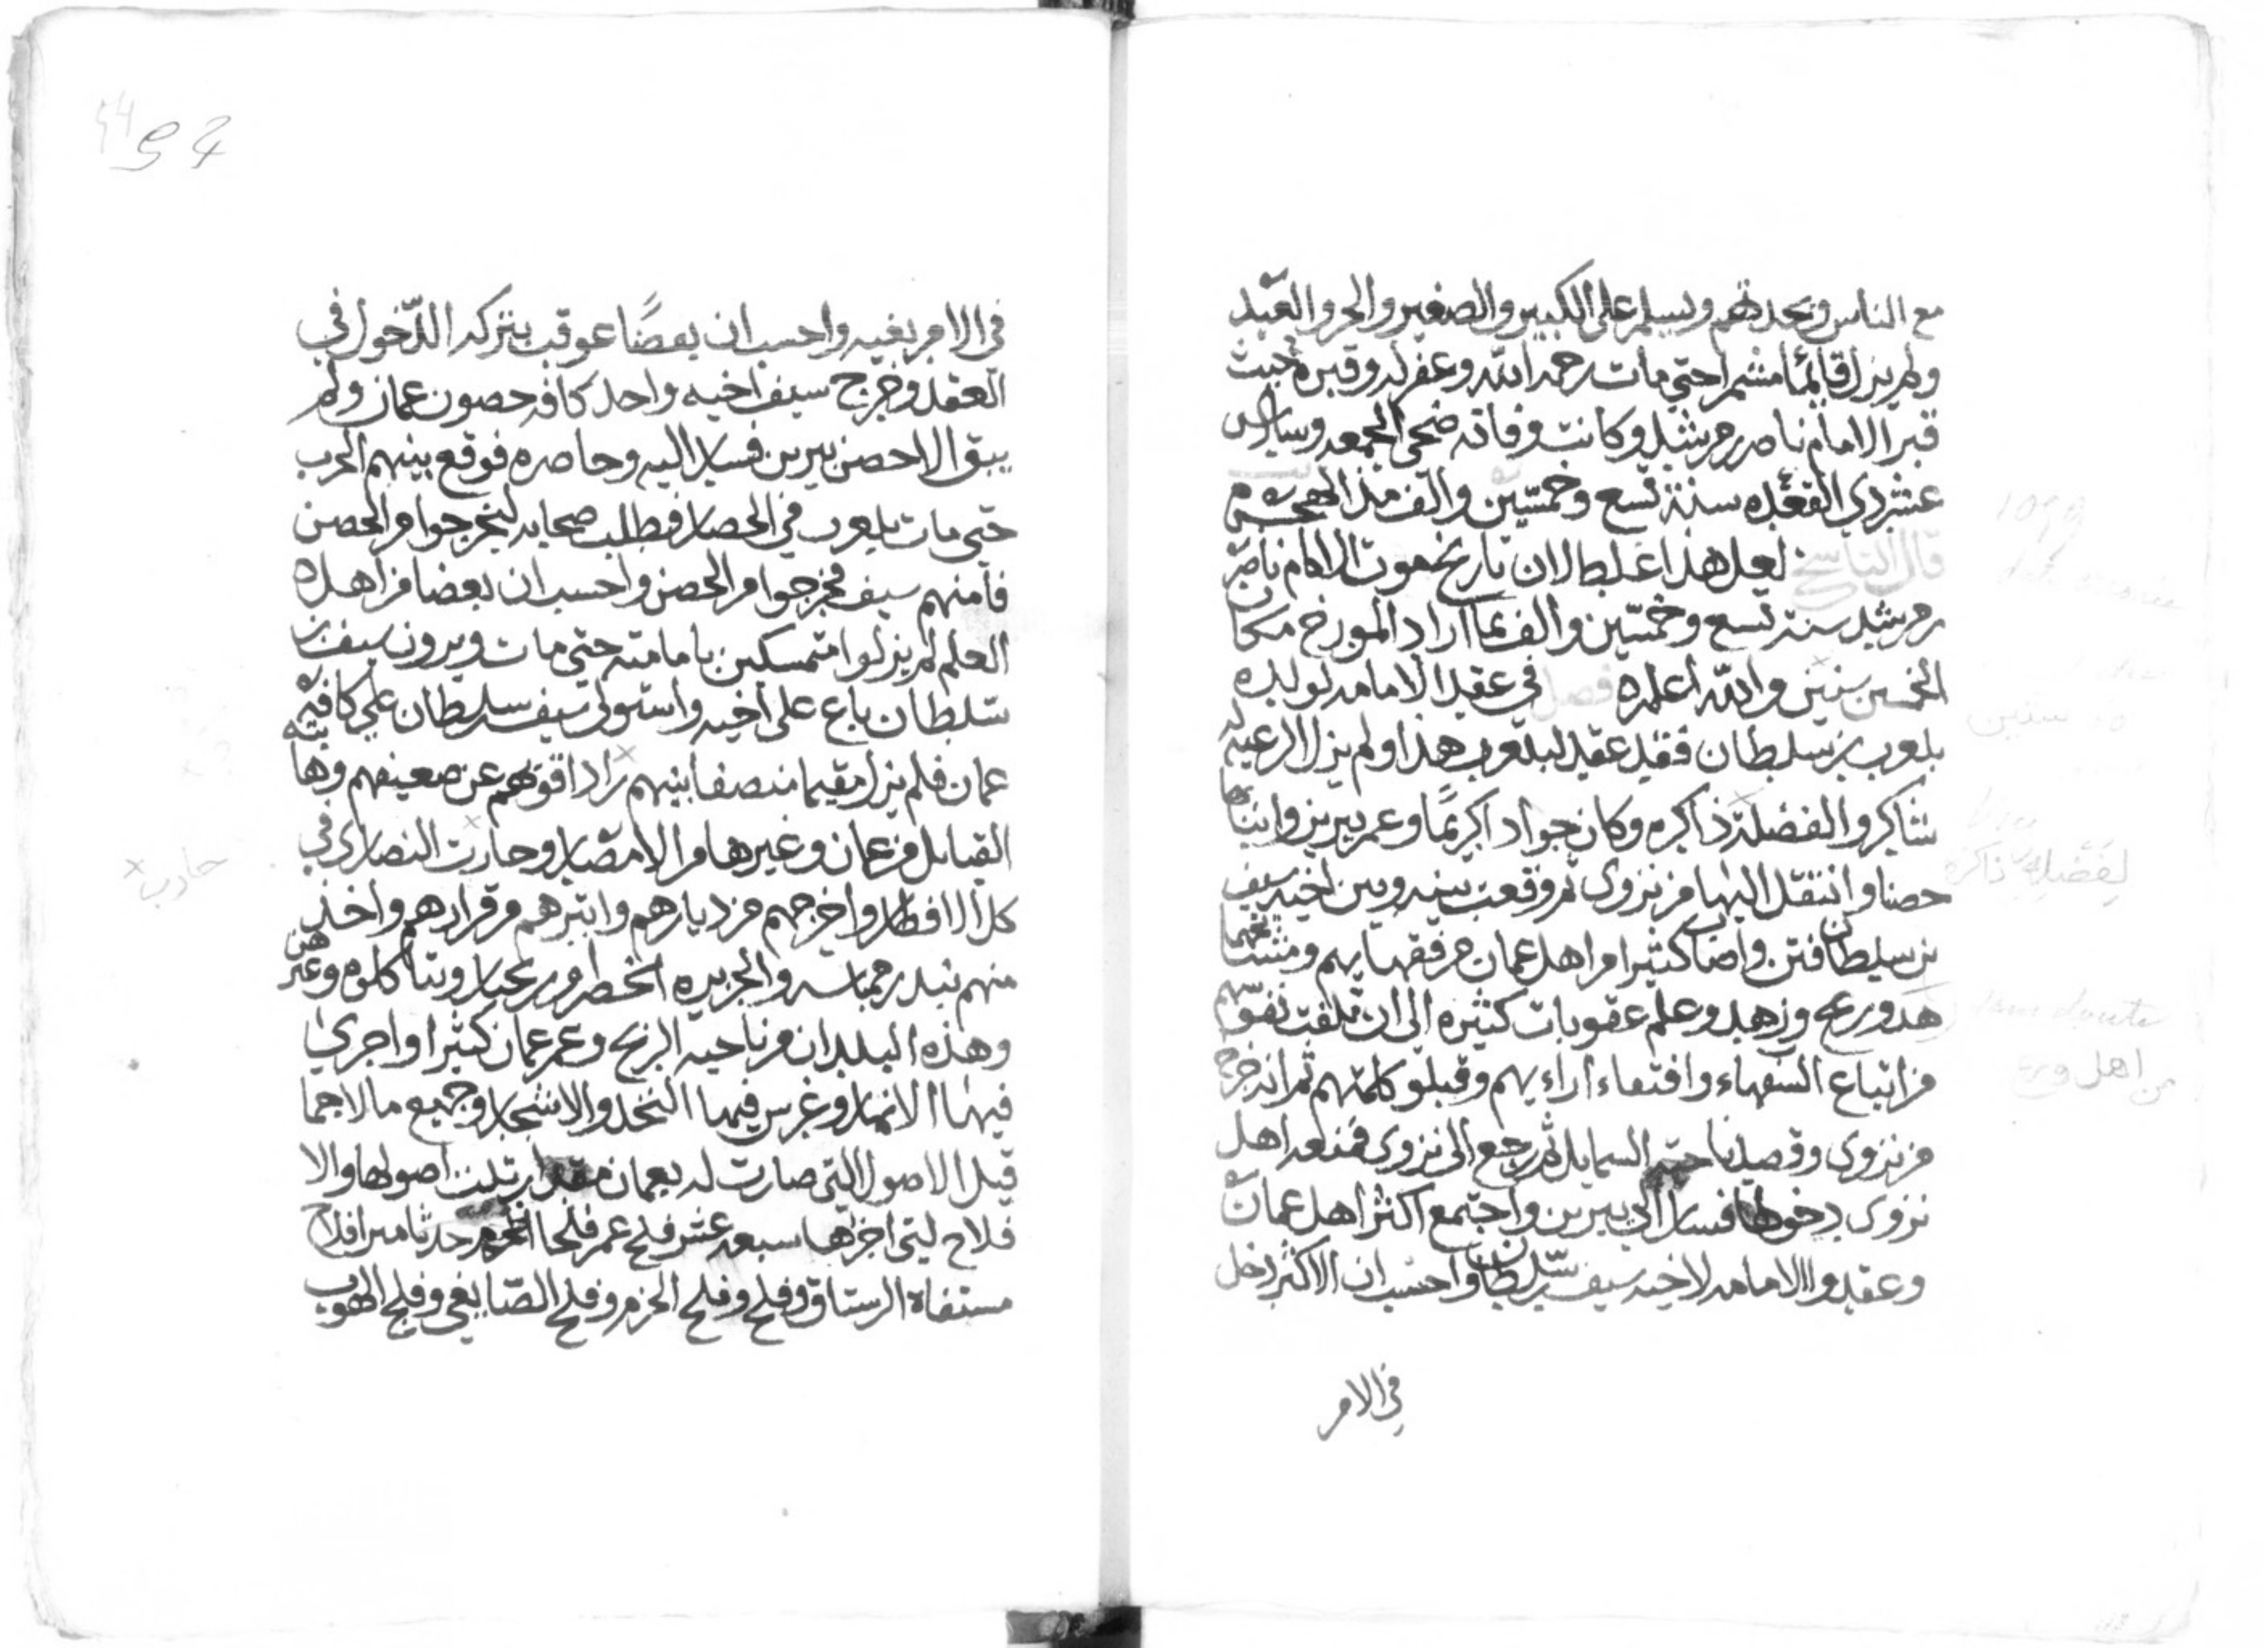 مع الناس ويحدثهم ويسلم على الكبير والصغير والحر والعبد
ولم يزل قائما مشمرا حتى مات رحمه الله وغفر له وقبره حيث
قبر الامام ناصر بن مرشد وكانت وفاته ضحى الجمعه وسادس
عشر ذي القعده سنة تسع وخمسين والف من الهجره
قال الناسخ لعل هذا غلط لان تاريخ موت الامام ناصر
بن مرشد سنة تسع وخمسين والف بما اراد المورخ مكان
الخمسين سنين والله اعلم فصل في عقد الامامه لولده
بلعرب بن سلطان فقد عقد لبلعرب هذا ولم يزل الرعية له
شاكره ولفضله ذاكره وكان جوادا كريما وعمر يبرين وابنتا بها
حصنا وانتقل اليها من نزوى ثم وقعت بينه وبين اخيه سيف
بن سلطان فتن واصاب كثيرا من اهل عمان من فقهايهم ومشائخها
هد ورع وزهد وعلم عقوبات كثيره الى ان تلفت نفوسهم
من اتباع السفهاء واقتفاء اراءيهم وقبلو كلمتهم ثم انه خرج
من نزوى وقصد ناحية السمايل ثم رجع الى نزوى فمنعه اهل
نزوى دخولها فسار الى يبرين واجتمع اكثر اهل عمان
وعقدوا الامامه لاخيه سيف بن سلطان واحسب ان الاكثر دخل
في الامر
1059
لفضله ذاكرة
من اهل ورع
54
في الامر بغيه واحسب ان بعضا عوقب بتركه الدخول في
العقد وخرج سيف اخيه واحد كافه حصون عمان ولم
يبق الا حصن يبرين فسار اليه وحاصره فوقع بينهم الحرب
حتى مات بلعرب في الحصار فطلب صحابه ليخرجوا من الحصن
فأمنهم سيف فخرجوا من الحصن واحسب ان بعضا من اهل
العلم لم يزلوا متمسكين بامامته حتى مات ويرون سيف بن
سلطان باغ على اخيه واستولى سيف بن سلطان على كافة
عمان فلم يزل مقيما منصفا بينهم راد اقويهم عن ضعيفهم وهابته
القبايل من عمان وغيرها من الامصار وحارت النصارى في
كل الاقطار واخرجهم من ديارهم وابتزهم من قرارهم واخذ
منهم بندر ممباسه والجزيره الخضر وربحبار وبتا وكلوه وغيرهن
وهذه البلدان من ناحية الزنج وعمر عمان كثيرا واجرى
فيها الانهار وغرس فيها النخل والاشجار وجميع مالا جما
قيل الاصول التي صارت له بعمان مقدار ثلث اصولها والا
فلاج ليتي اجراها سبعه عشر فلج عمر فلجا اخرهم حدثا من افلاج
مستفاه الرستاق وفلج وفلج الحزم وفلج الصايغي وفلج الهوب
حارب